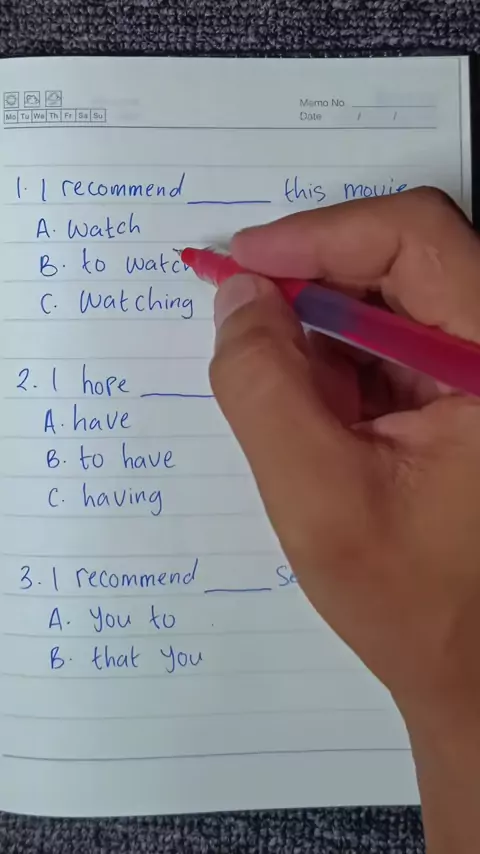 Memo No.
Mo Tu We Th Fr Sa Su
Date / /
1. I recommend ______ this movie
A. watch
B. to watch
C. watching
2. I hope ______
A. have
B. to have
C. having
3. I recommend _____
A. you to
B. that you